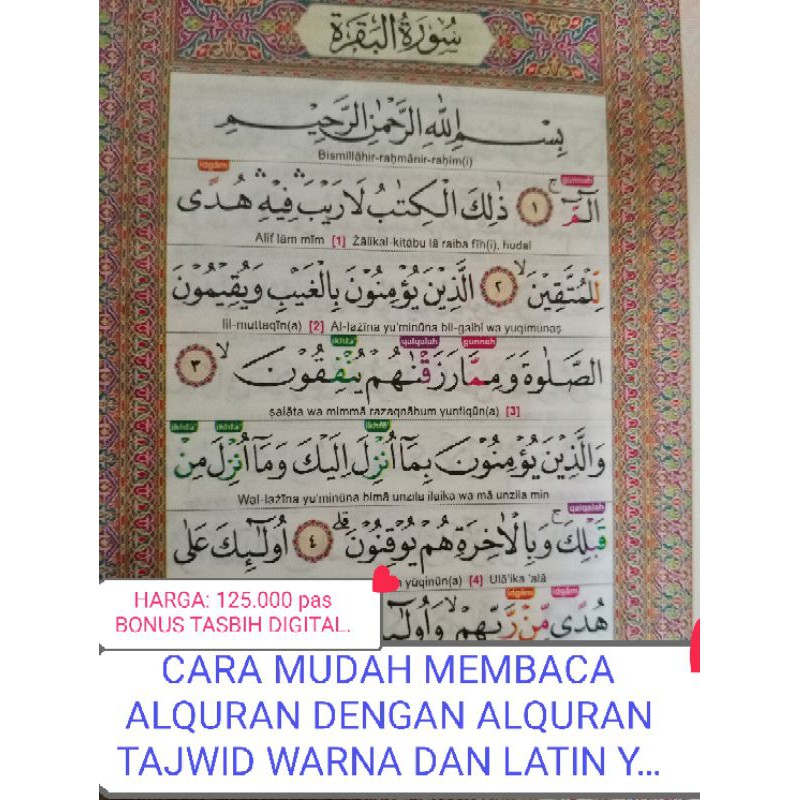 سُورَةُ الْبَقَرَةِ
بِسْمِ اللّٰهِ الرَّحْمٰنِ الرَّحِيْمِ
Bismillāhir-raḥmānir-raḥīm(i)
idgām gunnah
الۤمّۤ ۚ ١ ذٰلِكَ الْكِتٰبُ لَا رَيْبَ ۛ فِيْهِ ۛ هُدًى
Alif lām mīm [1] Żālikal-kitābu lā raiba fīh(i), hudal
لِّلْمُتَّقِيْنَ ۙ ٢ الَّذِيْنَ يُؤْمِنُوْنَ بِالْغَيْبِ وَيُقِيْمُوْنَ
lil-muttaqīn(a) [2] Al-lażīna yu'minūna bil-gaibi wa yuqīmūnaṣ
ikhfa' qalqalah gunnah
الصَّلٰوةَ وَمِمَّا رَزَقْنٰهُمْ يُنْفِقُوْنَ ۙ ٣
ṣalāta wa mimmā razaqnāhum yunfiqūn(a) [3]
ikhfa' ikhfa' ikhfa'
وَالَّذِيْنَ يُؤْمِنُوْنَ بِمَآ اُنْزِلَ اِلَيْكَ وَمَآ اُنْزِلَ مِنْ
Wal-lażīna yu'minūna bimā unzila ilaika wa mā unzila min
qalqalah
قَبْلِكَ ۚ وَبِالْاٰخِرَةِ هُمْ يُوْقِنُوْنَ ۗ ٤ اُولٰۤىِٕكَ عَلٰى
yūqinūn(a) [4] Ulā'ika 'alā
idgām idgām
هُدًى مِّنْ رَّبِّهِمْ ۙ وَاُولٰۤىِٕ
HARGA: 125.000 pas
BONUS TASBIH DIGITAL.
CARA MUDAH MEMBACA
ALQURAN DENGAN ALQURAN
TAJWID WARNA DAN LATIN Y...